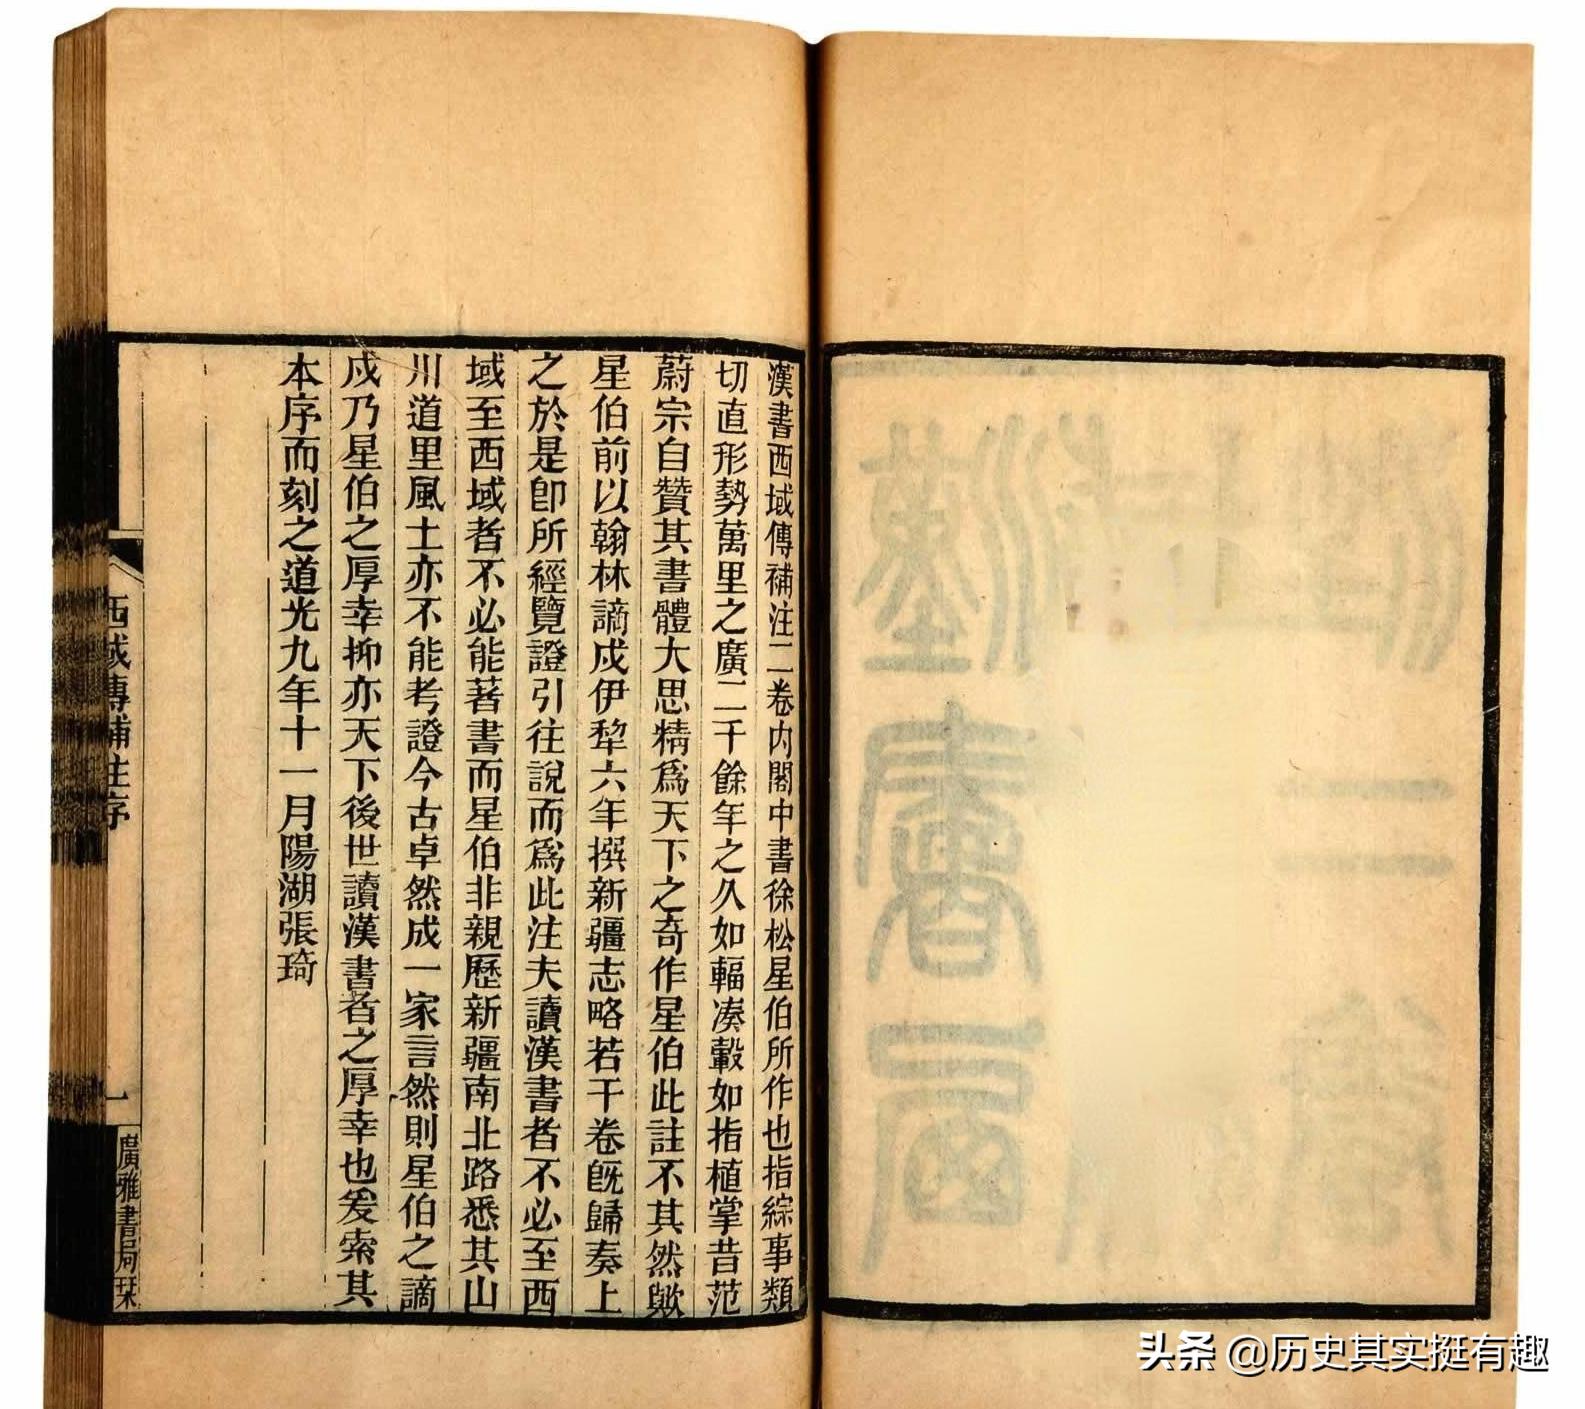 漢書西域傳補注二卷内閣中書徐松星伯所作也指綜事類
切直形勢萬里之廣二千餘年之久如輻湊轂如指植掌昔范
蔚宗自贊其書體大思精爲天下之奇作星伯此註不其然歟
星伯前以翰林謫戍伊犂六年撰新疆志略若干卷既歸奏上
之於是卽所經覽證引往說而爲此注夫讀漢書者不必至西
域至西域者不必能著書而星伯非親歷新疆南北路悉其山
川道里風土亦不能考證今古卓然成一家言然則星伯之謫
戍乃星伯之厚幸抑亦天下後世讀漢書者之厚幸也爰索其
本序而刻之道光九年十一月陽湖張琦
西域傳補注序
一
廣雅書局栞
头条 @历史其实挺有趣